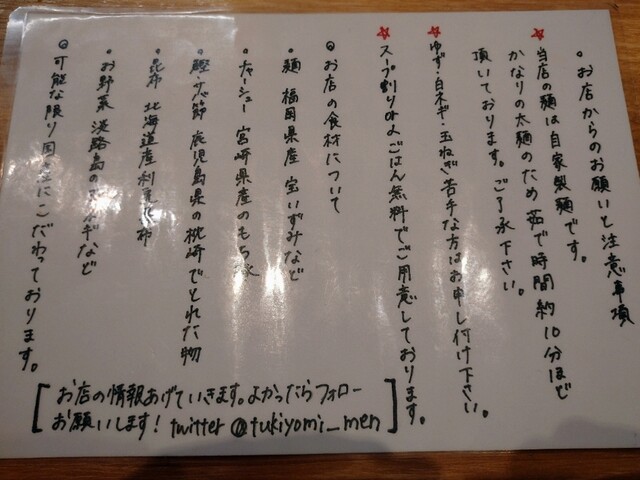 ・お店からのお願いと注意事項
☆当店の麺は自家製麺です。
かなりの太麺のため茹で時間約10分ほど
頂いております。ご了承下さい。
☆ゆず・白ネギ・玉ねぎ苦手な方はお申し付け下さい。
☆スープ割りorごはん無料でご用意しております。
◎お店の食材について
・麺 福岡県産 宝いずみなど
・チャーシュー 宮崎県産のもち豚
・鰹サバ節 鹿児島県の枕崎でとれた物
・昆布 北海道産利尻昆布
・お野菜 淡路島の ネギなど
◎可能な限り国産にこだわっております。
[お店の情報あげていきます。よかったらフォロー
お願いします! twitter @tukiyomi_men]